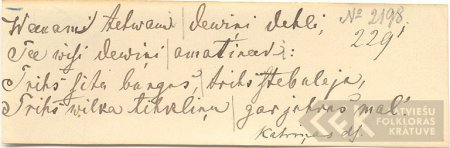 Wezami tehwami dewiņi dehli, № 2198.
2291
Tee wisi dewiņi amatineeki:
Trihs sita bungas, trihs stebuleja,
Trihs wilka tihkliņu gar juhras mali.
Katriņas dz.
LATVIEŠU
FOLKLORAS
KRĀTUVE